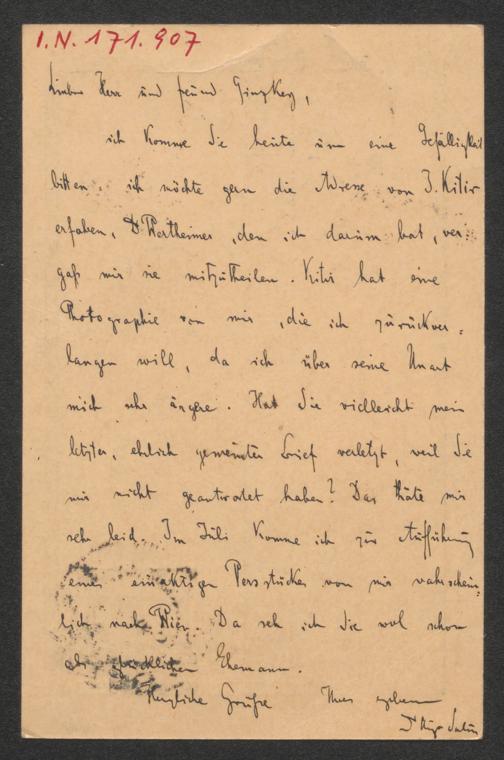 I.N. 171.907
Lieber Herr und Freund Ginzkey,
ich komme Sie heute um eine Gefälligkeit
bitten. ich möchte gern die Adresse von J. Kitir
erfahren, Dr Wertheimer, den ich darum bat, ver-
gaß mir sie mitzutheilen. Kitir hat eine
Photographie von mir, die ich zurückver-
langen will, da ich über seine Unart
mich sehr ärgere. Hat Sie vielleicht mein
letzter, ehrlich gemeinter Brief verletzt, weil Sie
mir nicht geantwortet haben? Das thäte mir
sehr leid. Im Juli komme ich zur Aufführung
eines einaktigen Versstückes von mir wahrschein-
lich nach Wien. Da seh ich Sie wol schon
als glücklichen Ehemann.
Herzliche Grüße Ihres ergebenen
Dr Hugo Salus